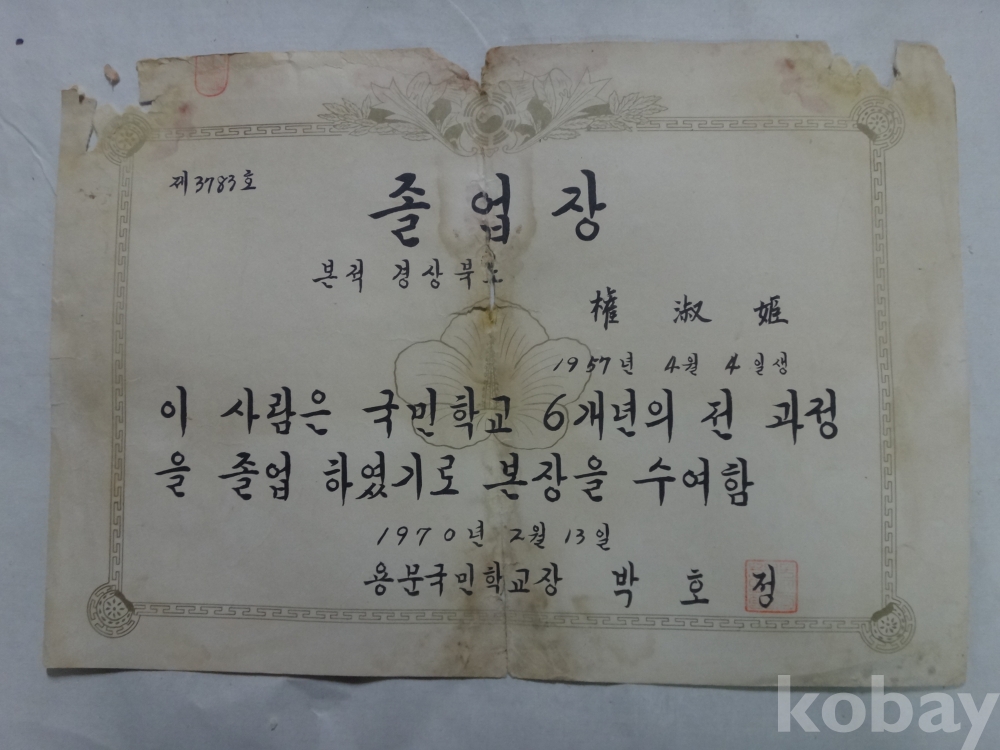 제3783호
졸업장
본적 경상북도
權 淑 姬
1957년 4월 4일생
이 사람은 국민학교 6개년의 전 과정
을 졸업 하였기로 본장을 수여함
1970년 2월 13일
용문국민학교장 박 호 정
kobay